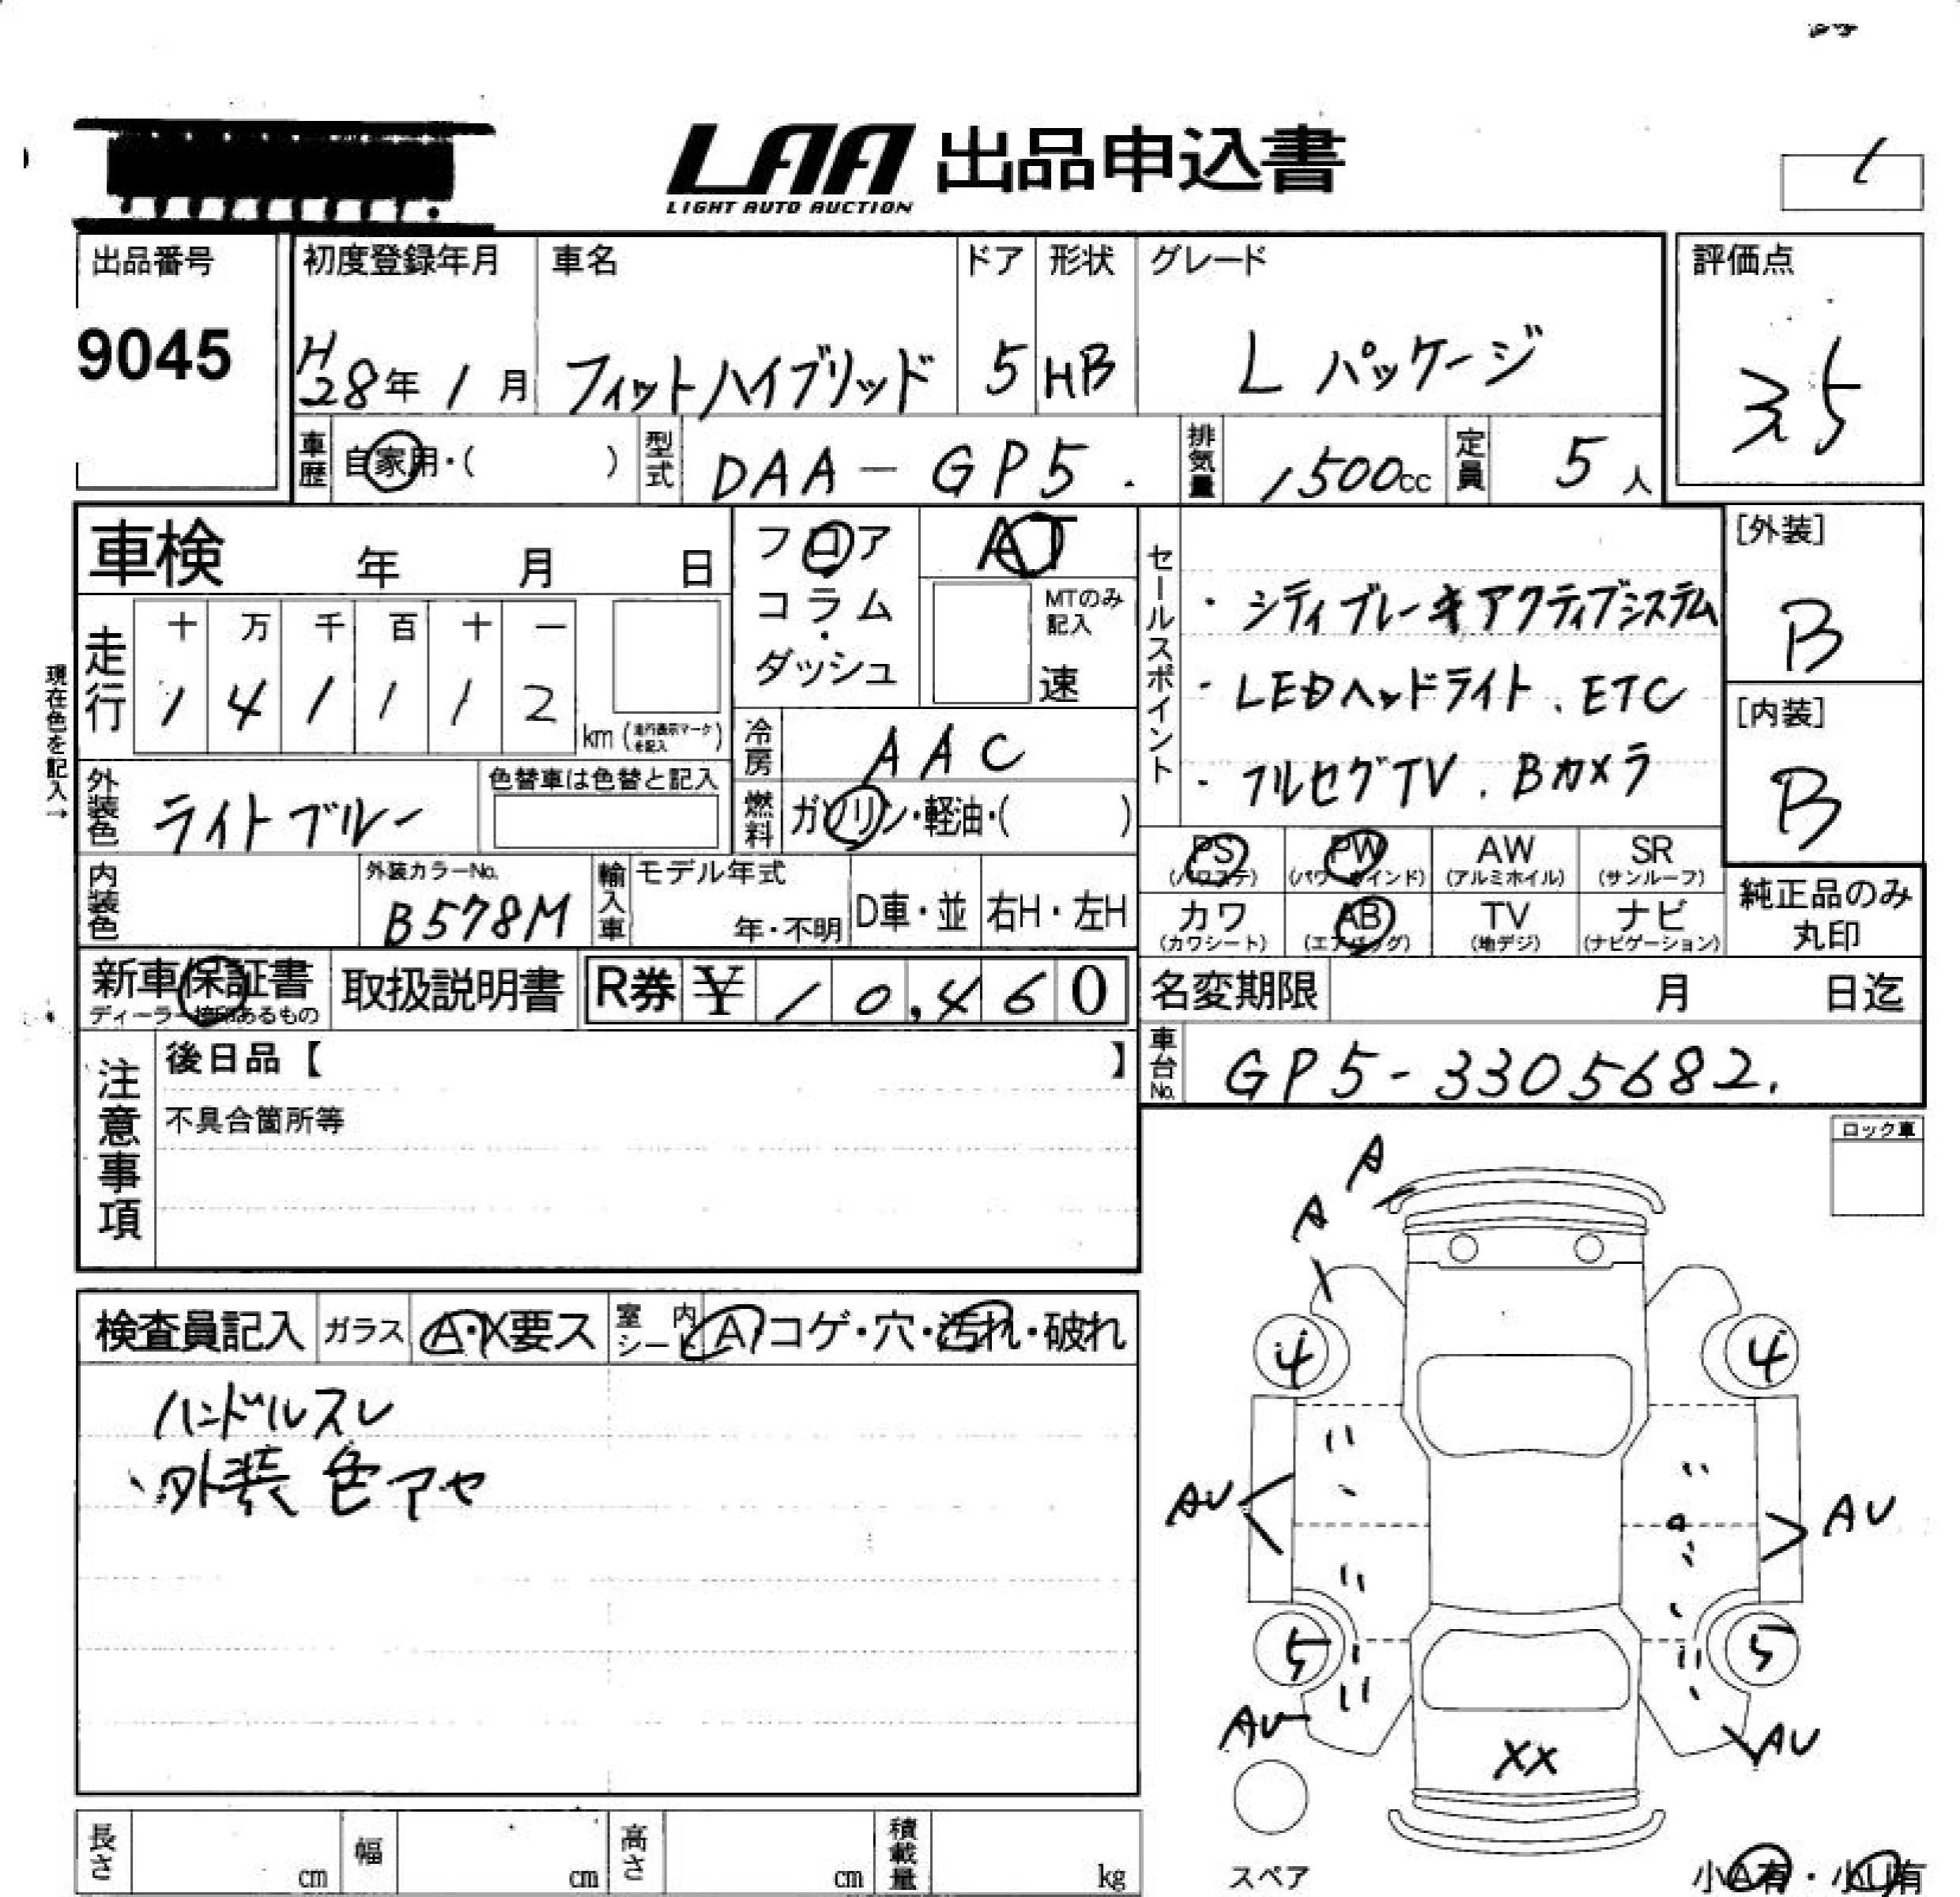 LAA 出品申込書
LIGHT AUTO AUCTION
出品番号
9045
初度登録年月
H28年1月
車名
フィットハイブリッド
ドア
5
形状
HB
グレード
L パッケージ
評価点
3.5
車歴 自家用・( )
型式 DAA-GP5.
排気量 1500cc
定員 5人
車検 年 月 日
フロア
コラム
・
ダッシュ
AT
MTのみ記入
速
セールスポイント
・シティブレーキアクティブシステム
・LEDヘッドライト、ETC
・フルセグTV、Bカメラ
[外装]
B
[内装]
B
現在色を記入→
走行
十 万 千 百 十 一
1 4 1 1 1 2
km (走行表示マークを記入)
冷房 AAC
燃料 ガソリン・軽油・( )
外装色 ライトブルー
色替車は色替と記入
内装色
外装カラーNo.
B578M
輸入車
モデル年式
年・不明
D車・並
右H・左H
PS (パワステ)
PW (パワーウインド)
AW (アルミホイル)
SR (サンルーフ)
カワ (カワシート)
AB (エアバッグ)
TV (地デジ)
ナビ (ナビゲーション)
純正品のみ
丸印
新車保証書
ディーラー捺印あるもの
取扱説明書
R券 ¥ 10,460
名変期限 月 日迄
車台No. GP5-3305682.
注意事項
後日品【 】
不具合箇所等
ロック車
検査員記入
ガラス A・X要ス
室内シート A・コゲ・穴・汚れ・破れ
ハンドルスレ
、外装色アセ
A
A
4 4
AU AU
5 5
AU AU
XX
スペア
小A有・小U有
長さ cm
幅 cm
高さ cm
積載量 kg